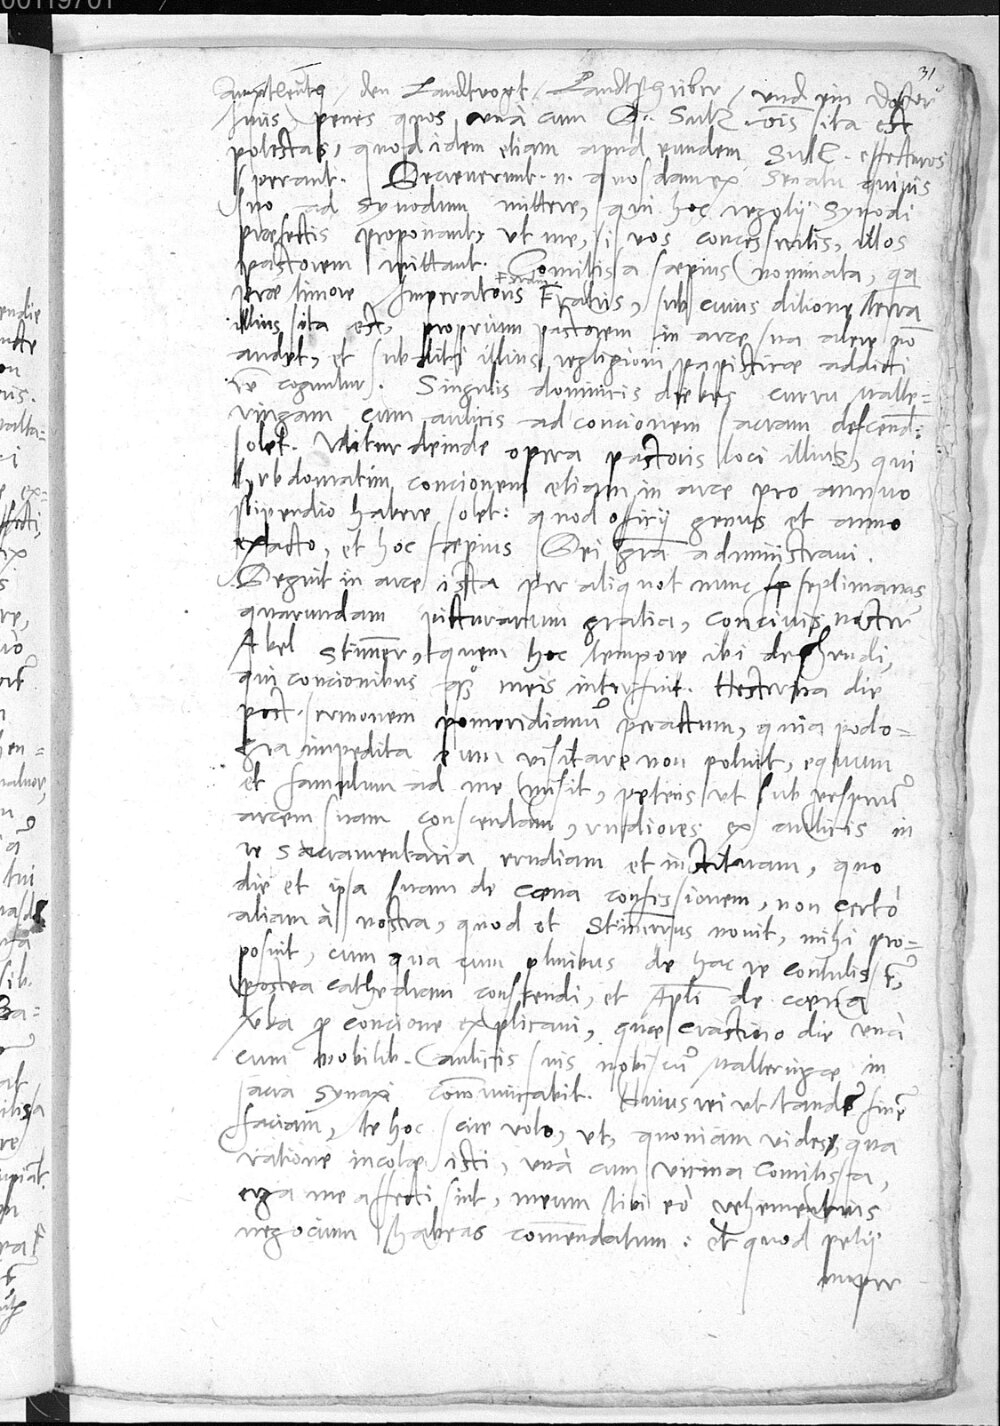 31
amptleütẽ / den Landtvogt / Landtschriber / und ein Doctor
iuris) penes quos unà cum G. Sulz. -ois sita est
potestas, quod idem etiam apud eundem Sulz. effecturos
sperant. Decreverunt .n. quosdam ex Senatu quivis
suo ad Synodum mittere, qui hoc negotij Synodi
praefectis proponant, ut me, si vos concesseritis, illos
pastorem mittant. Comitissa saepius nominata, quae
prae timore Imperatoris Ferdin. Fratris, sub cuius ditione terra
illius sita est, proprium pastorem in arce sua alere nõ
audet, et subditi illius religioni papisticae addicti
cẽ coguntur. Singulis dominicis diebus curru Matte=
vingam cum aulicis ad concionem sacram descend:
solet. Utitur deinde opera pastoris loci illius, qui
hebdomatim concionem etiam in arce pro annuo
stipendio habere solet: quod officij genus et anno
exacto, et hoc saepius Dei grã administravi.
Degit in arce ista per aliquot nunc septimanas
quarundam picturarum gratia, concivis noster
Abel Stimmer, quem hoc tempore ibi deprehendi,
qui concionibus quoque meis interfuit. Hesterna die
post sermonem pomeridianũ peractum, quia podo=
gra impedita eum visitare non potuit, equum
et famulum ad me misit, petens ut sub vesperũ
arcem suam conscendam, rudiores ex aulicis in
re Sacramentaria erudiam et instituam, quo
die et ipsa suam de coena confessionem, non certò
aliam à nostra, quod et Stimmerus novit, mihi pro=
posuit, cum qua cum pluribus de hac re contulissẽ,
postea cathedram conscendi, et Apli de coena
verba p concione explicavi, quae crastino die unà
cum nobilib. aulicis suis nobiscũ Matteringae in
sacra Synaxi communicabit. Huius rei ut tandẽ finẽ
faciam, te hoc scire volo, ut, quoniam vides, qua
ratione incolae isti, unà cum vicina Comitissa,
erga me affecti sint, meum tibi eò vehementius
negocium habeas comendatum: et quod petij
nuper